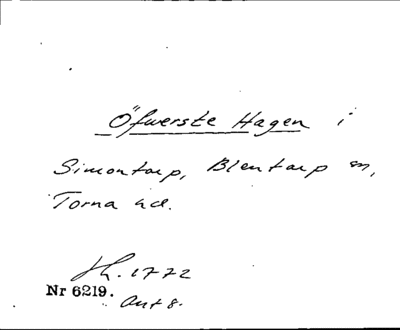 Öfwerste Hagen i
Simontorp, Blentarp sn,
Torna hd.
Sh. 1772
Nr 6219.
Akt 8.